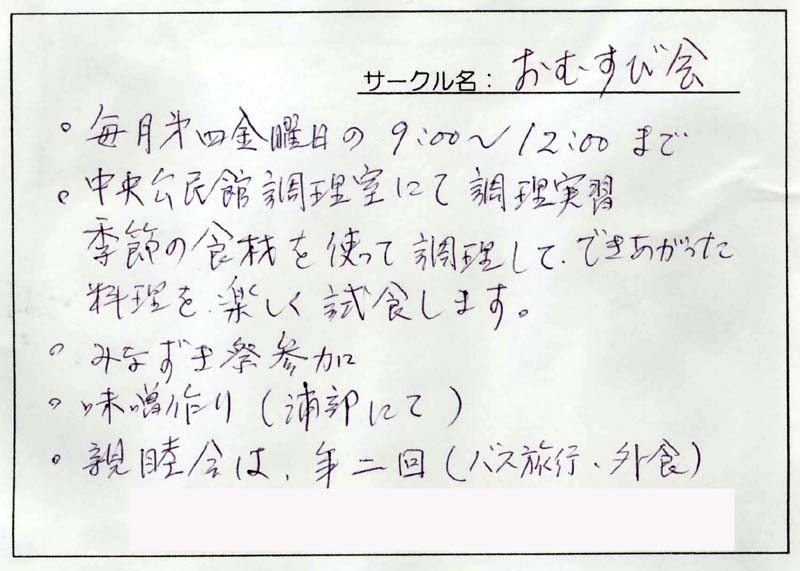 サークル名：おむすび会
。毎月第四金曜日の 9:00～12:00 まで
。中央公民館調理室にて調理実習
季節の食材を使って調理して、できあがった
料理を楽しく試食します。
。みなずき祭参加
。味噌作り(浦部にて)
。親睦会は、年二回(バス旅行、外食)